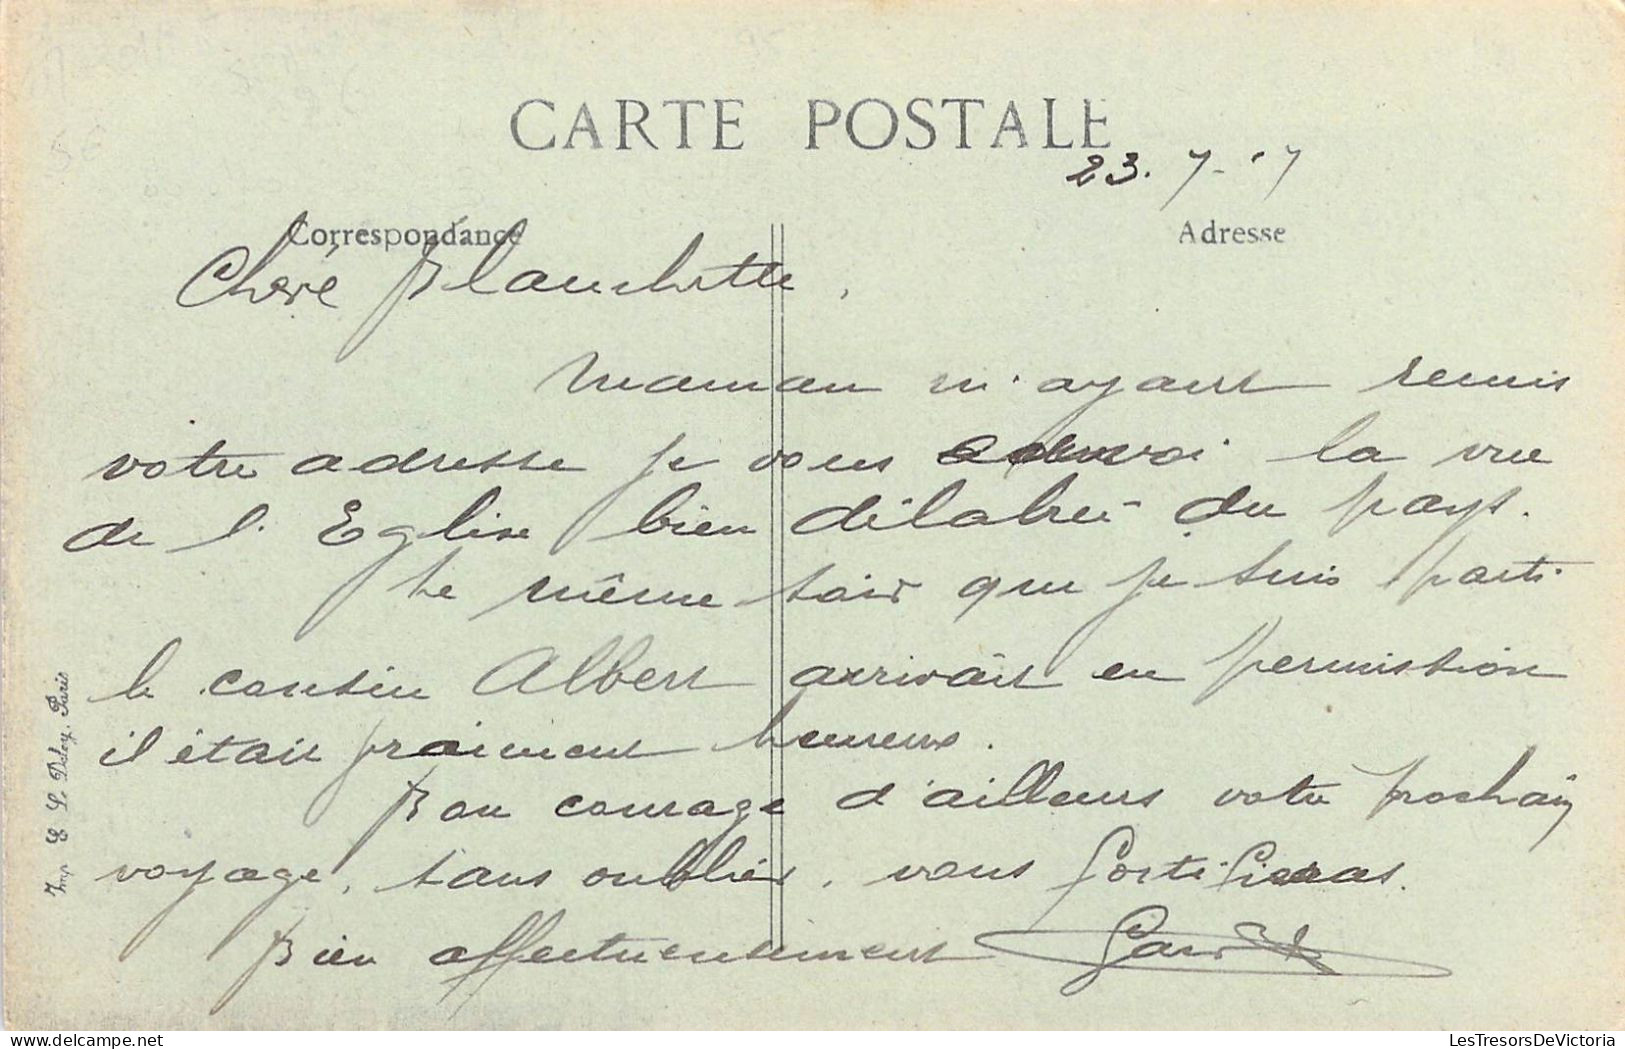 CARTE POSTALE
23. 7-17
Correspondance
Adresse
Chere Blanchette,
Maman m'ayant remis
votre adresse je vous envoi la vue
de l'Eglise bien délabré du pays.
Le même soir que je suis parti
le cousin Albert arrivait en permission
il était vraiment heureux.
Bon courage d'ailleurs votre prochain
voyage, sans oublier, vous fortifieras.
Bien affectueusement
Imp. E. L. Deley, Paris
5€
LesTresorsDeVictoria